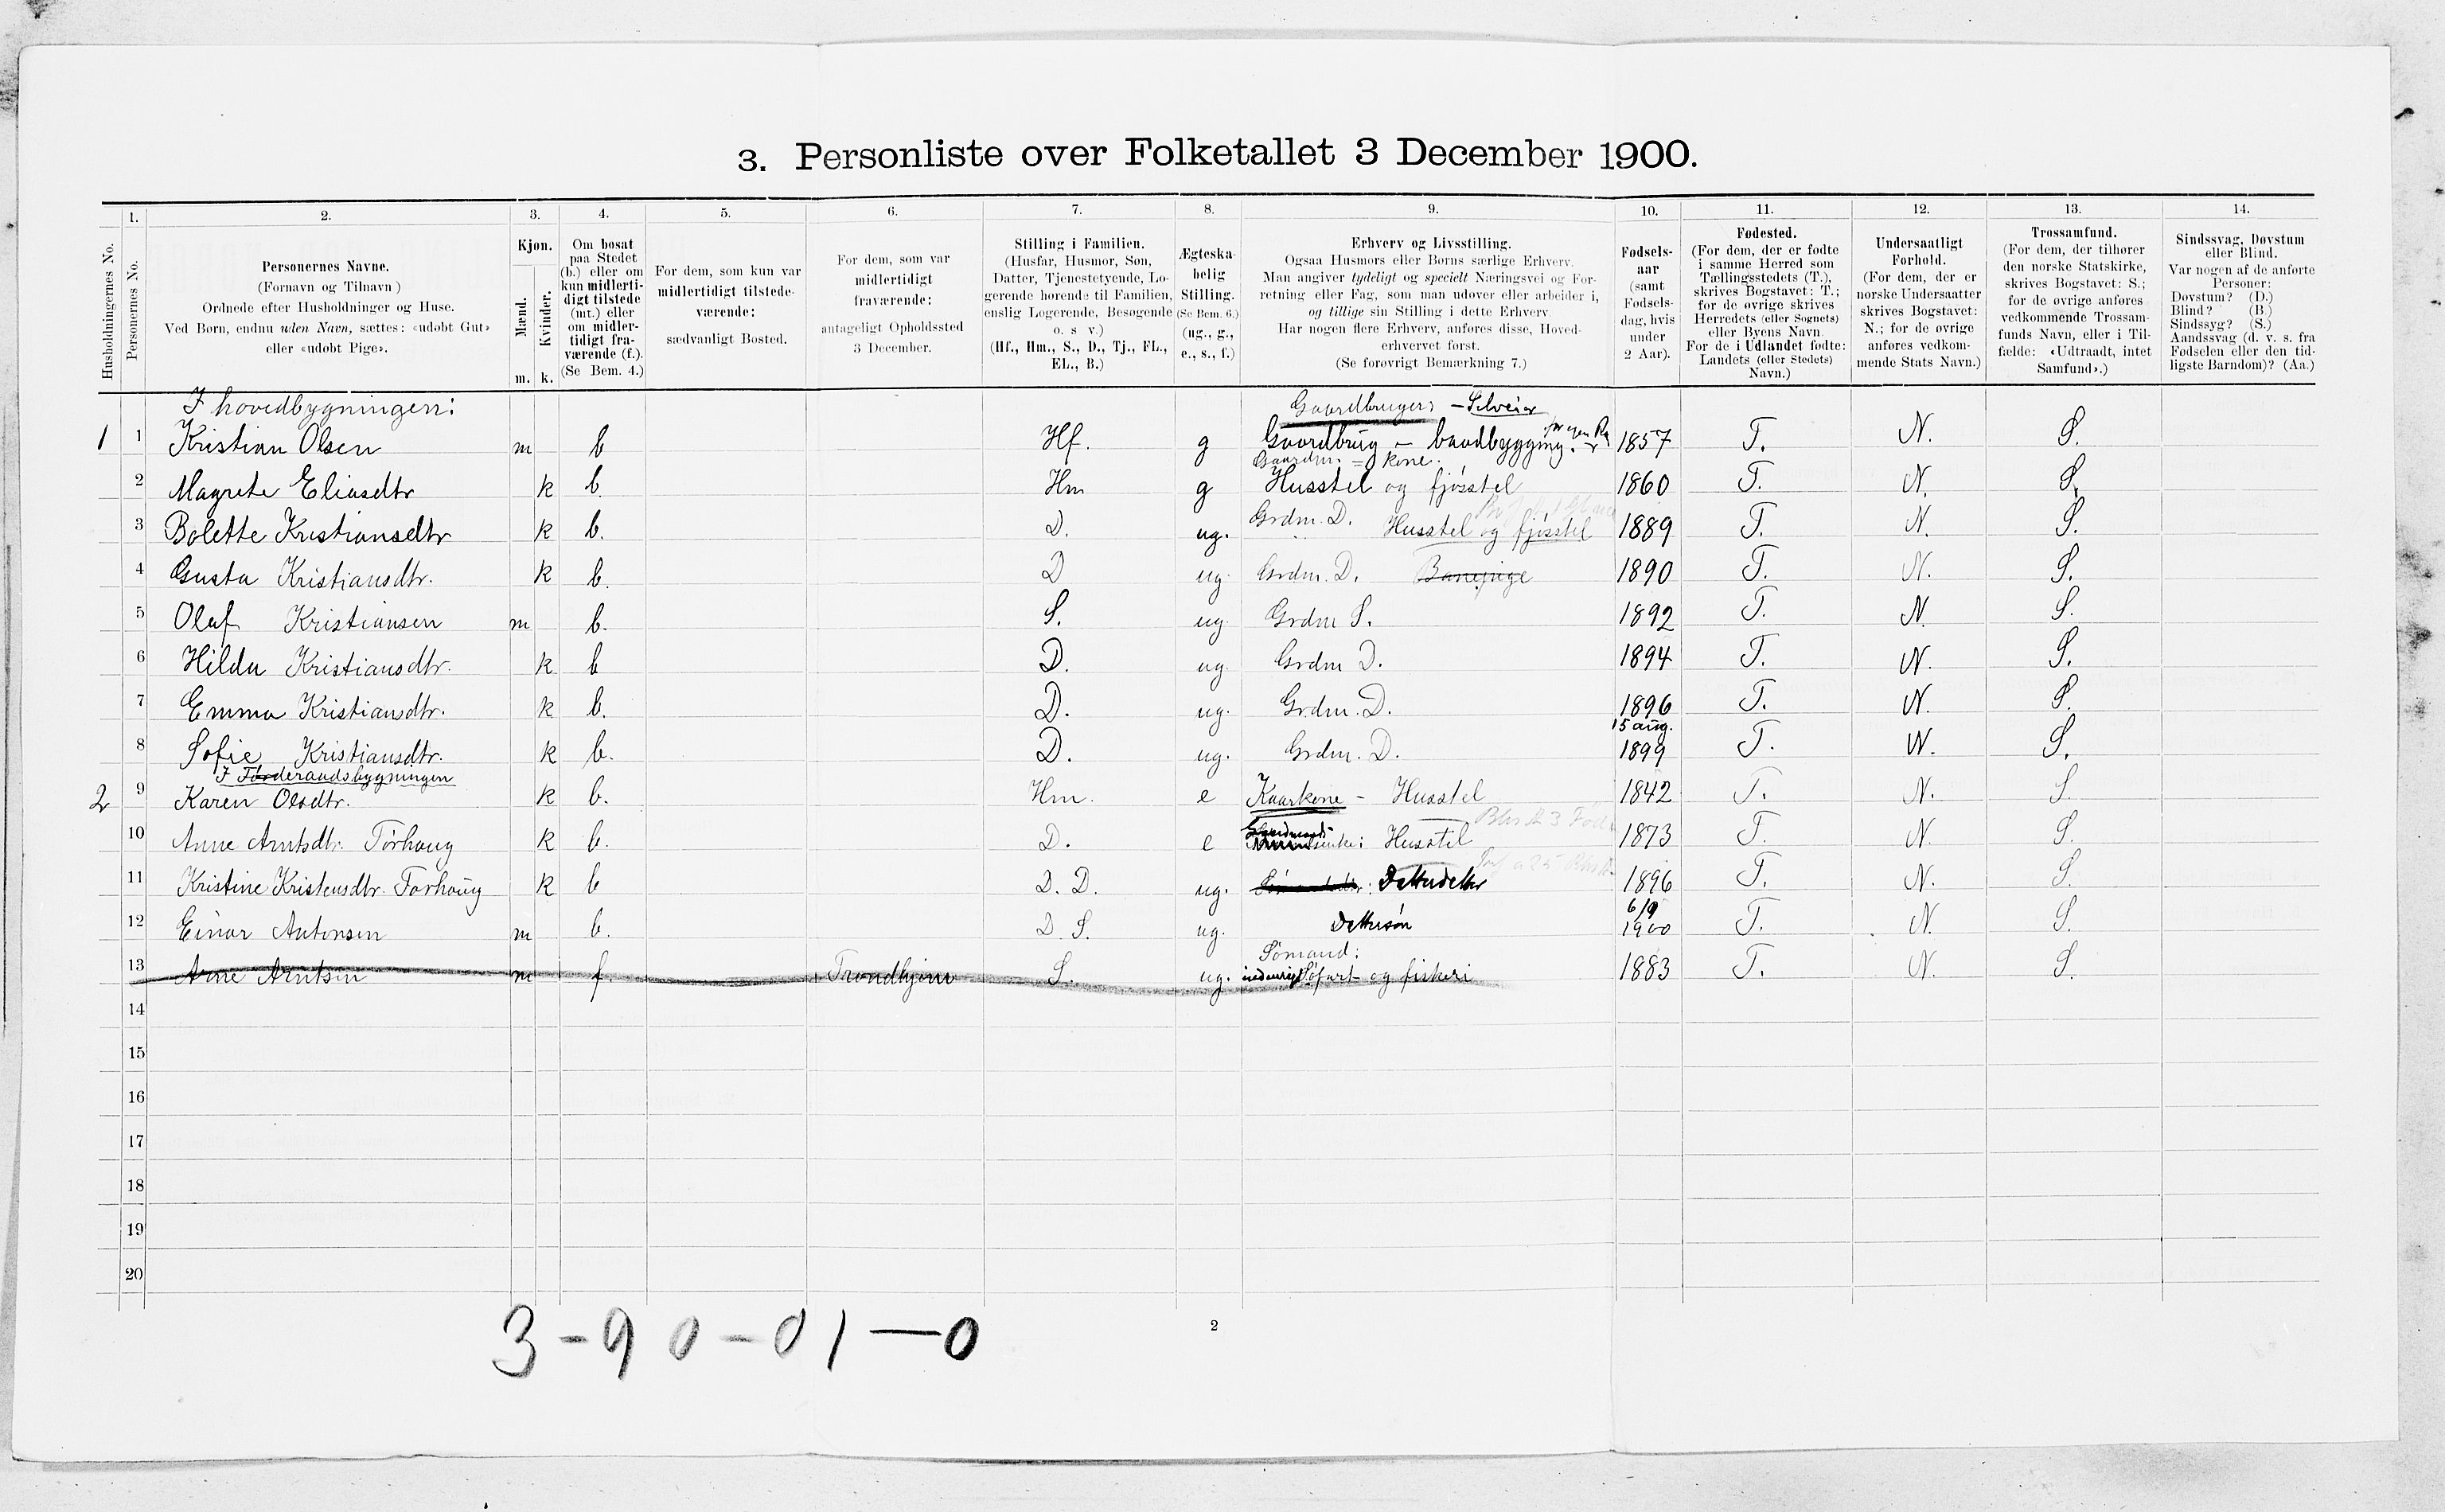 3. Personliste over Folketallet 3 December 1900.
Husholdningernes No.
1.
Personernes No.
2.
Personernes Navne.
(Fornavn og Tilnavn)
Ordnede efter Husholdninger og Huse.
Ved Børn, endnu uden Navn, sættes: «udøbt Gut»
eller «udøbt Pige».
3.
Kjøn.
Mænd.
Kvinder.
m. k.
4.
Om bosat
paa Stedet
(b.) eller om
kun midlerti-
digt tilstede
(mt.) eller
om midler-
tidigt fra-
værende (f.).
(Se Bem. 4.)
5.
For dem, som kun var
midlertidigt tilstede-
værende:
sædvanligt Bosted.
6.
For dem, som var
midlertidigt
fraværende:
antageligt Opholdssted
3 December.
7.
Stilling i Familien.
(Husfar, Husmor, Søn,
Datter, Tjenestetyende, Lo-
gerende hørende til Familien,
enslig Logerende, Besøgende
o. s v.)
(Hf., Hm., S., D., Tj., FL.,
EL., B.)
8.
Ægteska-
belig
Stilling.
(Se Bem. 6.)
(ug., g.,
e., s., f.)
9.
Erhverv og Livsstilling.
Ogsaa Husmors eller Børns særlige Erhverv.
Man angiver tydeligt og specielt Næringsvei og For-
retning eller Fag, som man udøver eller arbeider i,
og tillige sin Stilling i dette Erhverv.
Har nogen flere Erhverv, anføres disse, Hoved-
erhvervet først.
(Se forøvrigt Bemærkning 7.)
10.
Fødsels-
aar
(samt
Fødsels-
dag, hvis
under
2 Aar).
11.
Fødested.
(For dem, der er fødte
i samme Herred som
Tællingsstedets (T.),
skrives Bogstavet: T.;
for de øvrige skrives
Herredets (eller Sognets)
eller Byens Navn.
For de i Udlandet fødte:
Landets (eller Stedets)
Navn.)
12.
Undersaatligt
Forhold.
(For dem, der er
norske Undersaatter
skrives Bogstavet:
N.; for de øvrige
anføres vedkom-
mende Stats Navn.)
13.
Trossamfund.
(For dem, der tilhører
den norske Statskirke,
skrives Bogstavet: S.;
for de øvrige anføres
vedkommende Trossam-
funds Navn, eller i Til-
fælde: «Udtraadt, intet
Samfund».)
14.
Sindssvag, Døvstum
eller Blind.
Var nogen af de anførte
Personer:
Døvstum? (D.)
Blind? (B.)
Sindssyg? (S.)
Aandssvag (d. v. s. fra
Fødselen eller den tid-
ligste Barndom)? (Aa.)
I hovedbygningen: Gaardbruger: - Selveier
1 1 Kristian Olsen m b Hf. g Gaardbrug - baadbygging. 1857 T. N. S.
Gaardm. = kone.
2 Magrete Eliasdtr k b. Hm g Husstel og fjøsstel 1860 T. N. S.
3 Bolette Kristiansdtr k b. D. ug. Grdm. D. Husstel og fjøsstel 1889 T. N. S.
4 Gusta Kristiansdtr. k b. D ug. Grdm. D. 1890 T. N. S.
5 Olaf Kristiansen m b. S. ug Grdm S. 1892 T. N. S.
6 Hilda Kristiansdtr. k b D. ug. Grdm D. 1894 T. N. S.
7 Emma Kristiansdtr. k b. D. ug. Grdm. D. 1896 T. N. S.
15 aug.
8 Sofie Kristiansdtr. k b. D. ug. Grdm. D. 1899 T. N. S.
I Føderaadsbygningen
2 9 Karen Olsdtr. k b. Hm. e Kaarkone - Husstel 1842 T. N. S.
10 Anne Arntsdtr. Tørhoug k b. D. e Husstel 1873 T. N. S.
11 Kristine Kristensdtr. Torhoug k b D. D. ug. Datterdatter 1896 T. N. S.
6/9
12 Einar Antonsen m b. D. S. ug. Dattersøn 1900 T. N. S.
Sømand:
13 Arne Arntsen m f. Trondhjem S. ug. indenrigs Søfart og fiskeri 1883 T. N. S.
14
15
16
17
18
19
20
3 - 9 0 - 0 1 - 0
2